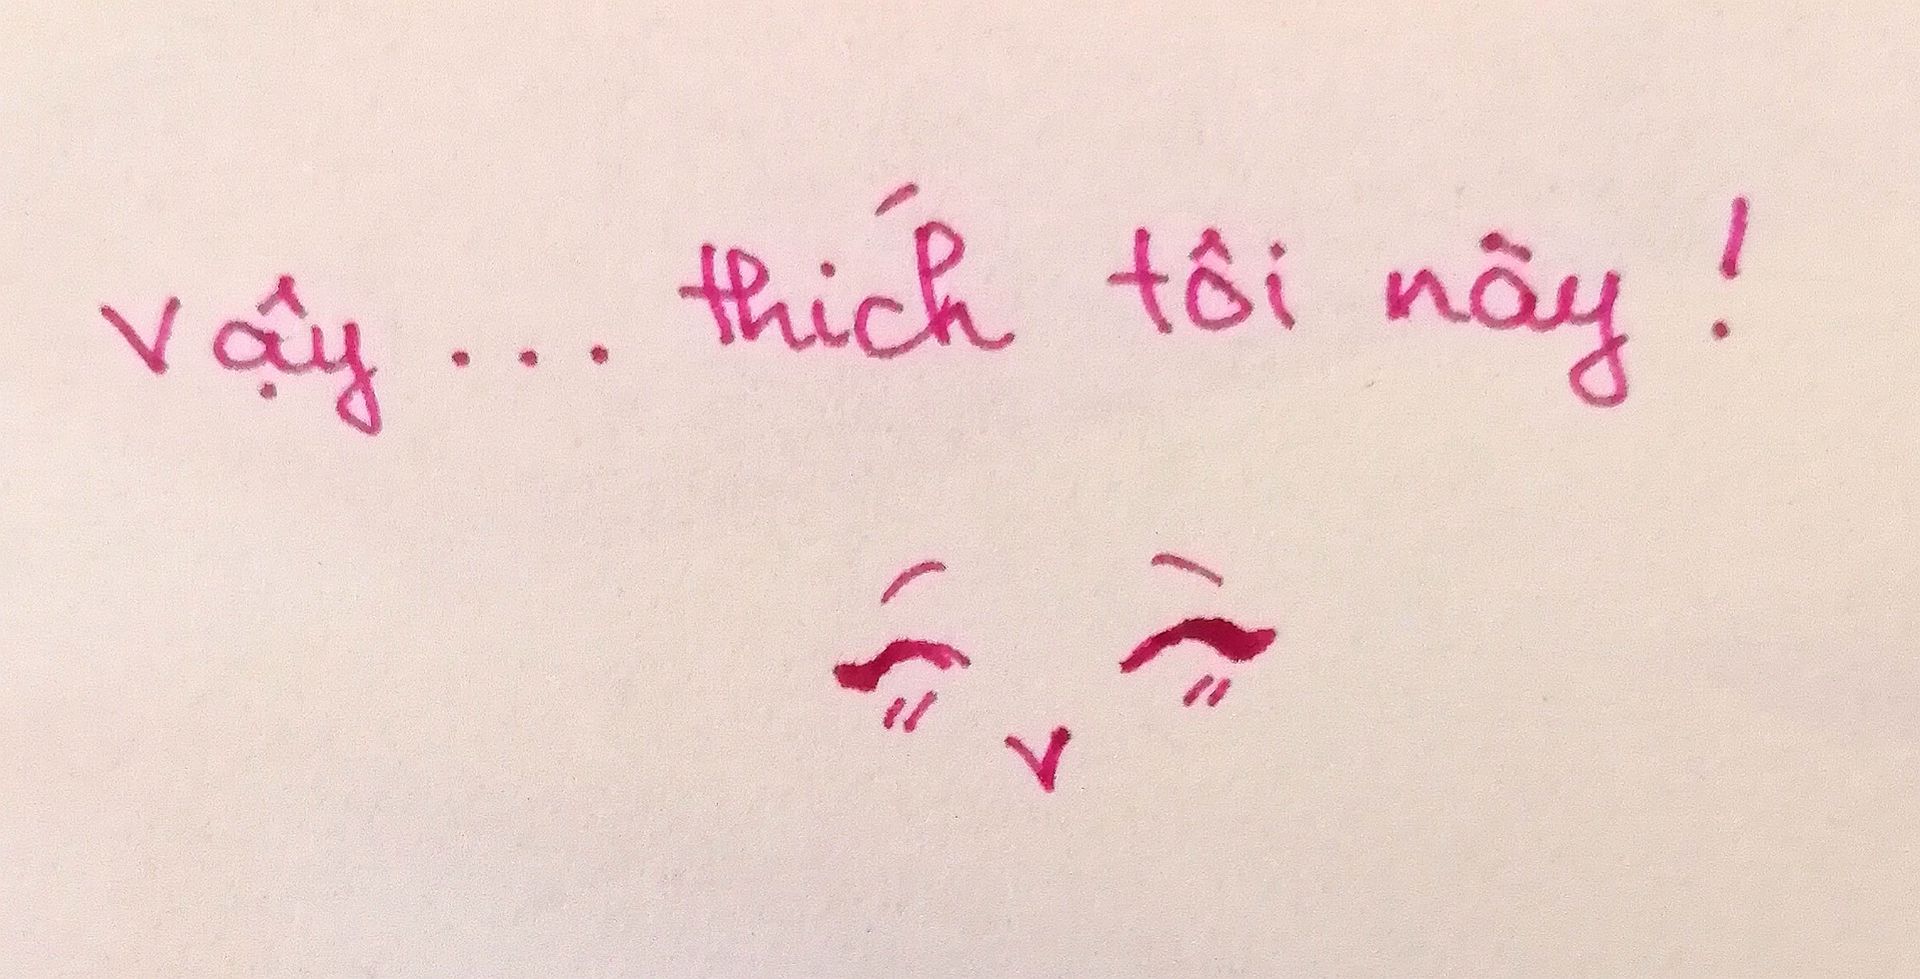 vậy... thích tôi này!